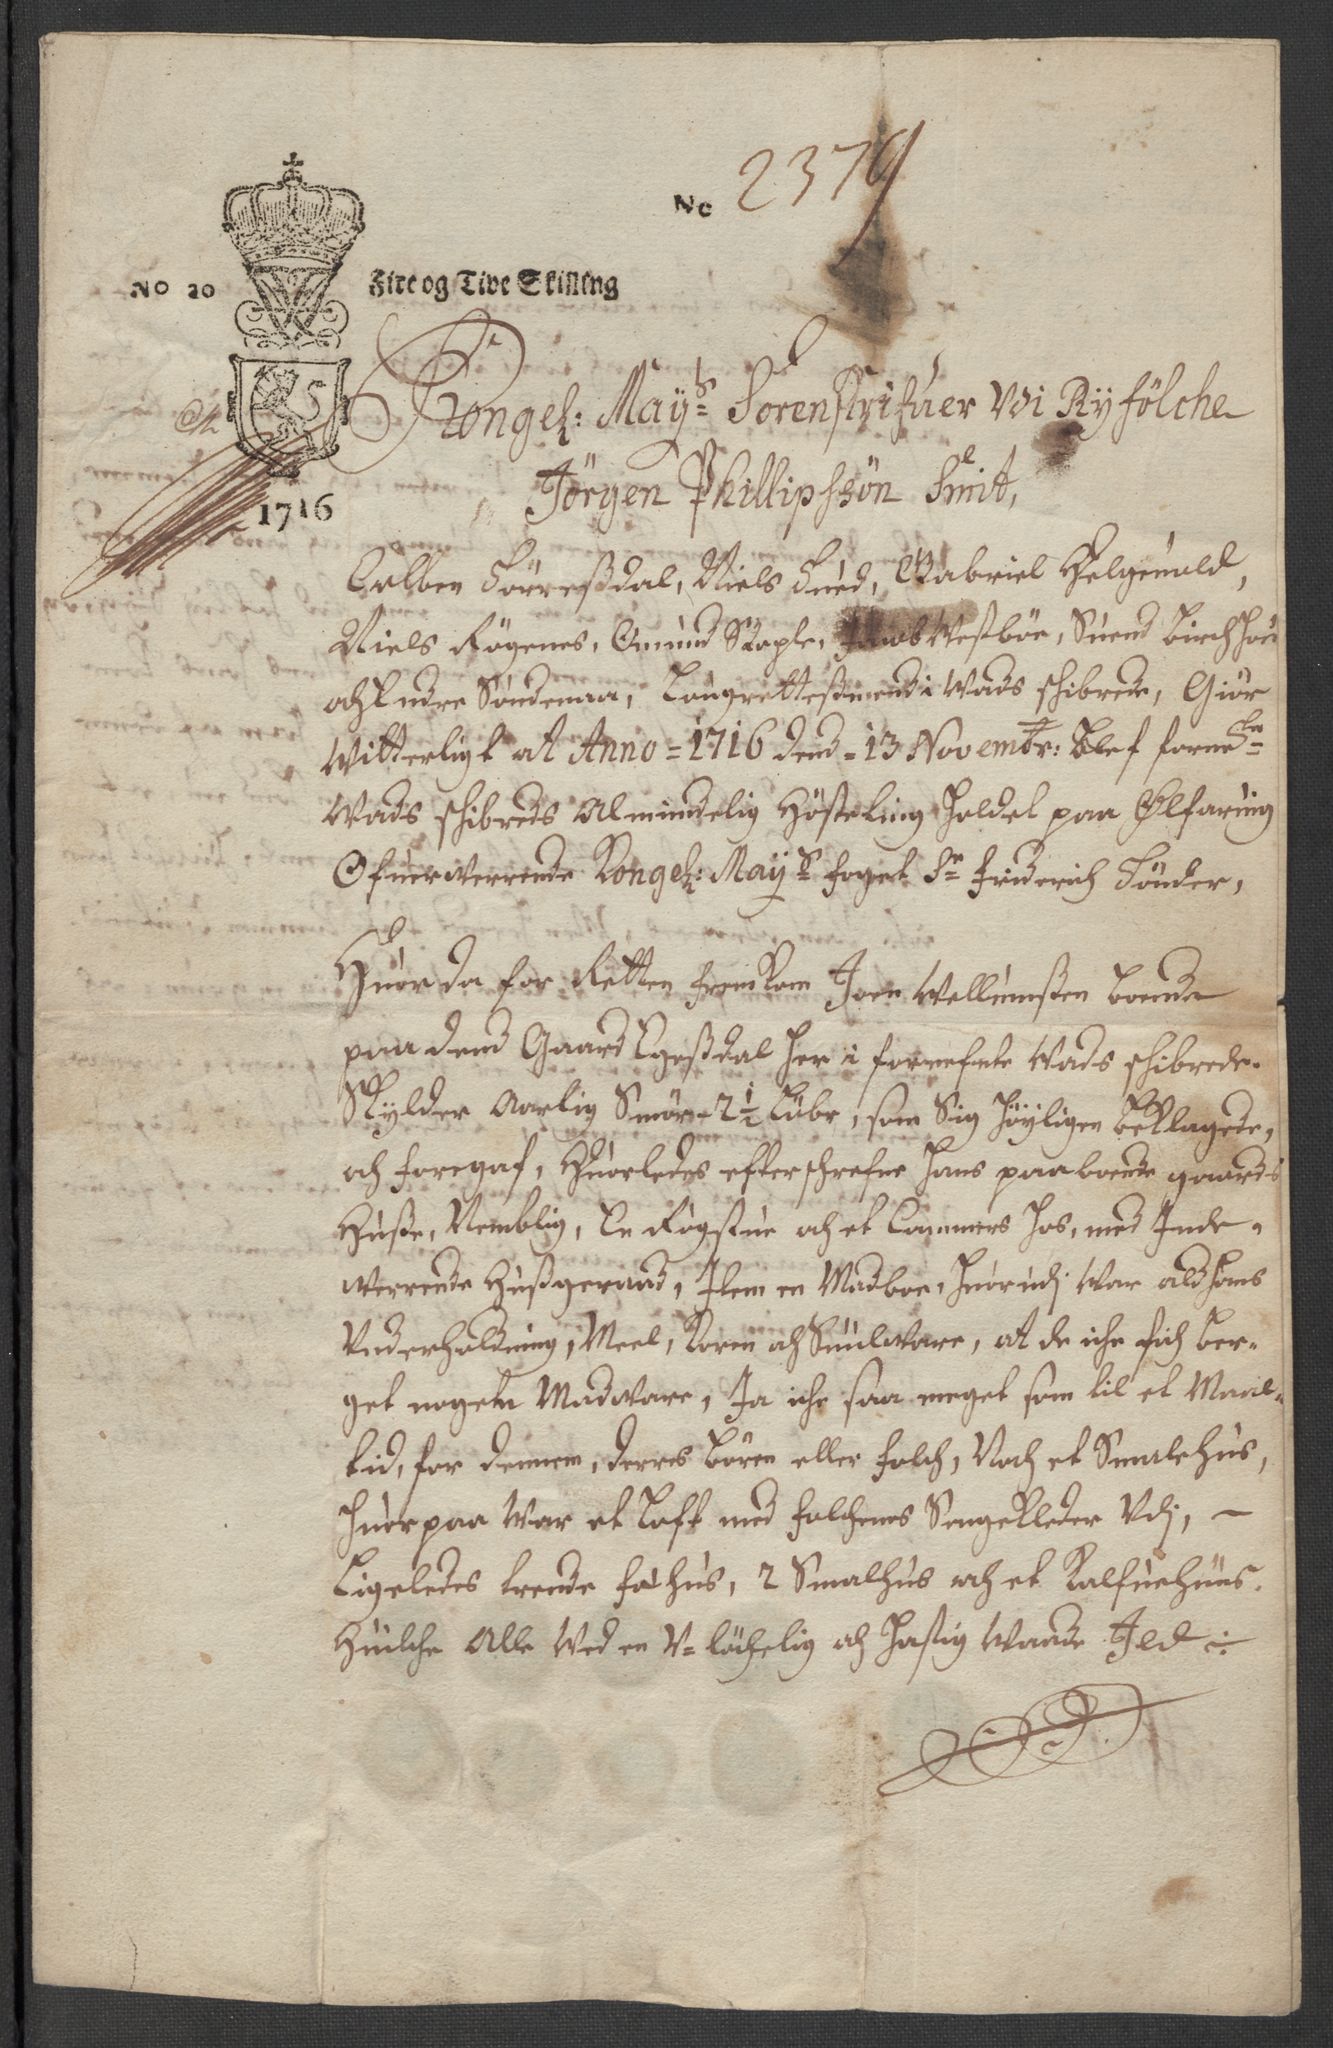 No 2379
No 20 Fire og Tive Skilling
1716
Kongel: May:ts Sorenskrifuer Vdi Ryfölche
Jörgen Phillipssön Smit,
Colben Törresdal, Niels Tued, Gabriel Helgeuold,
Niels Røgenes, Omund Stople, Jacob Westbøe, Suend Birch
och Endre Söndenaa, Laugrettesmend i Wads schibrede, Giör
Witterligt at Anno = 1716 dend = 13 Novembr: blef forne:
Wads schibreds Almindelig Hösteting holdet paa Ølfaring
Ofuerwerrende Kongel: May:ts foget Sr Friderich Tönder,
Huor da for Retten fremkom Joen Wellumsen boende
paa dend Gaard Egesdal her i forrefnte Wads schibrede.
Skylder Aarlig Smör - 2½ Løbr, som Sig höyligen beklagede,
och foregaf, Huorledes efterschrefne hans paaboende gaards
Huse, Nemblig, En Rögstue och et Cammers hos, med Inde-
werrende Husgeraad, Item en Madboe, huorudj War ald hans
Vnderholdning, Meel, Koren och Suulware, at de iche fich ber-
get nogen Madware, Ja iche saa meget som til et Maal-
tid, for dennem, deres börn eller folch, Noch et Smalehus,
huorpaa War et loft med folchenes Sengeklæder Vdj, -
Ligeledes trende fæhus, 2 Smalhus och et Kalfuehuus.
Huilche Alle Ved en V-löchelig och hastig Waade Ild